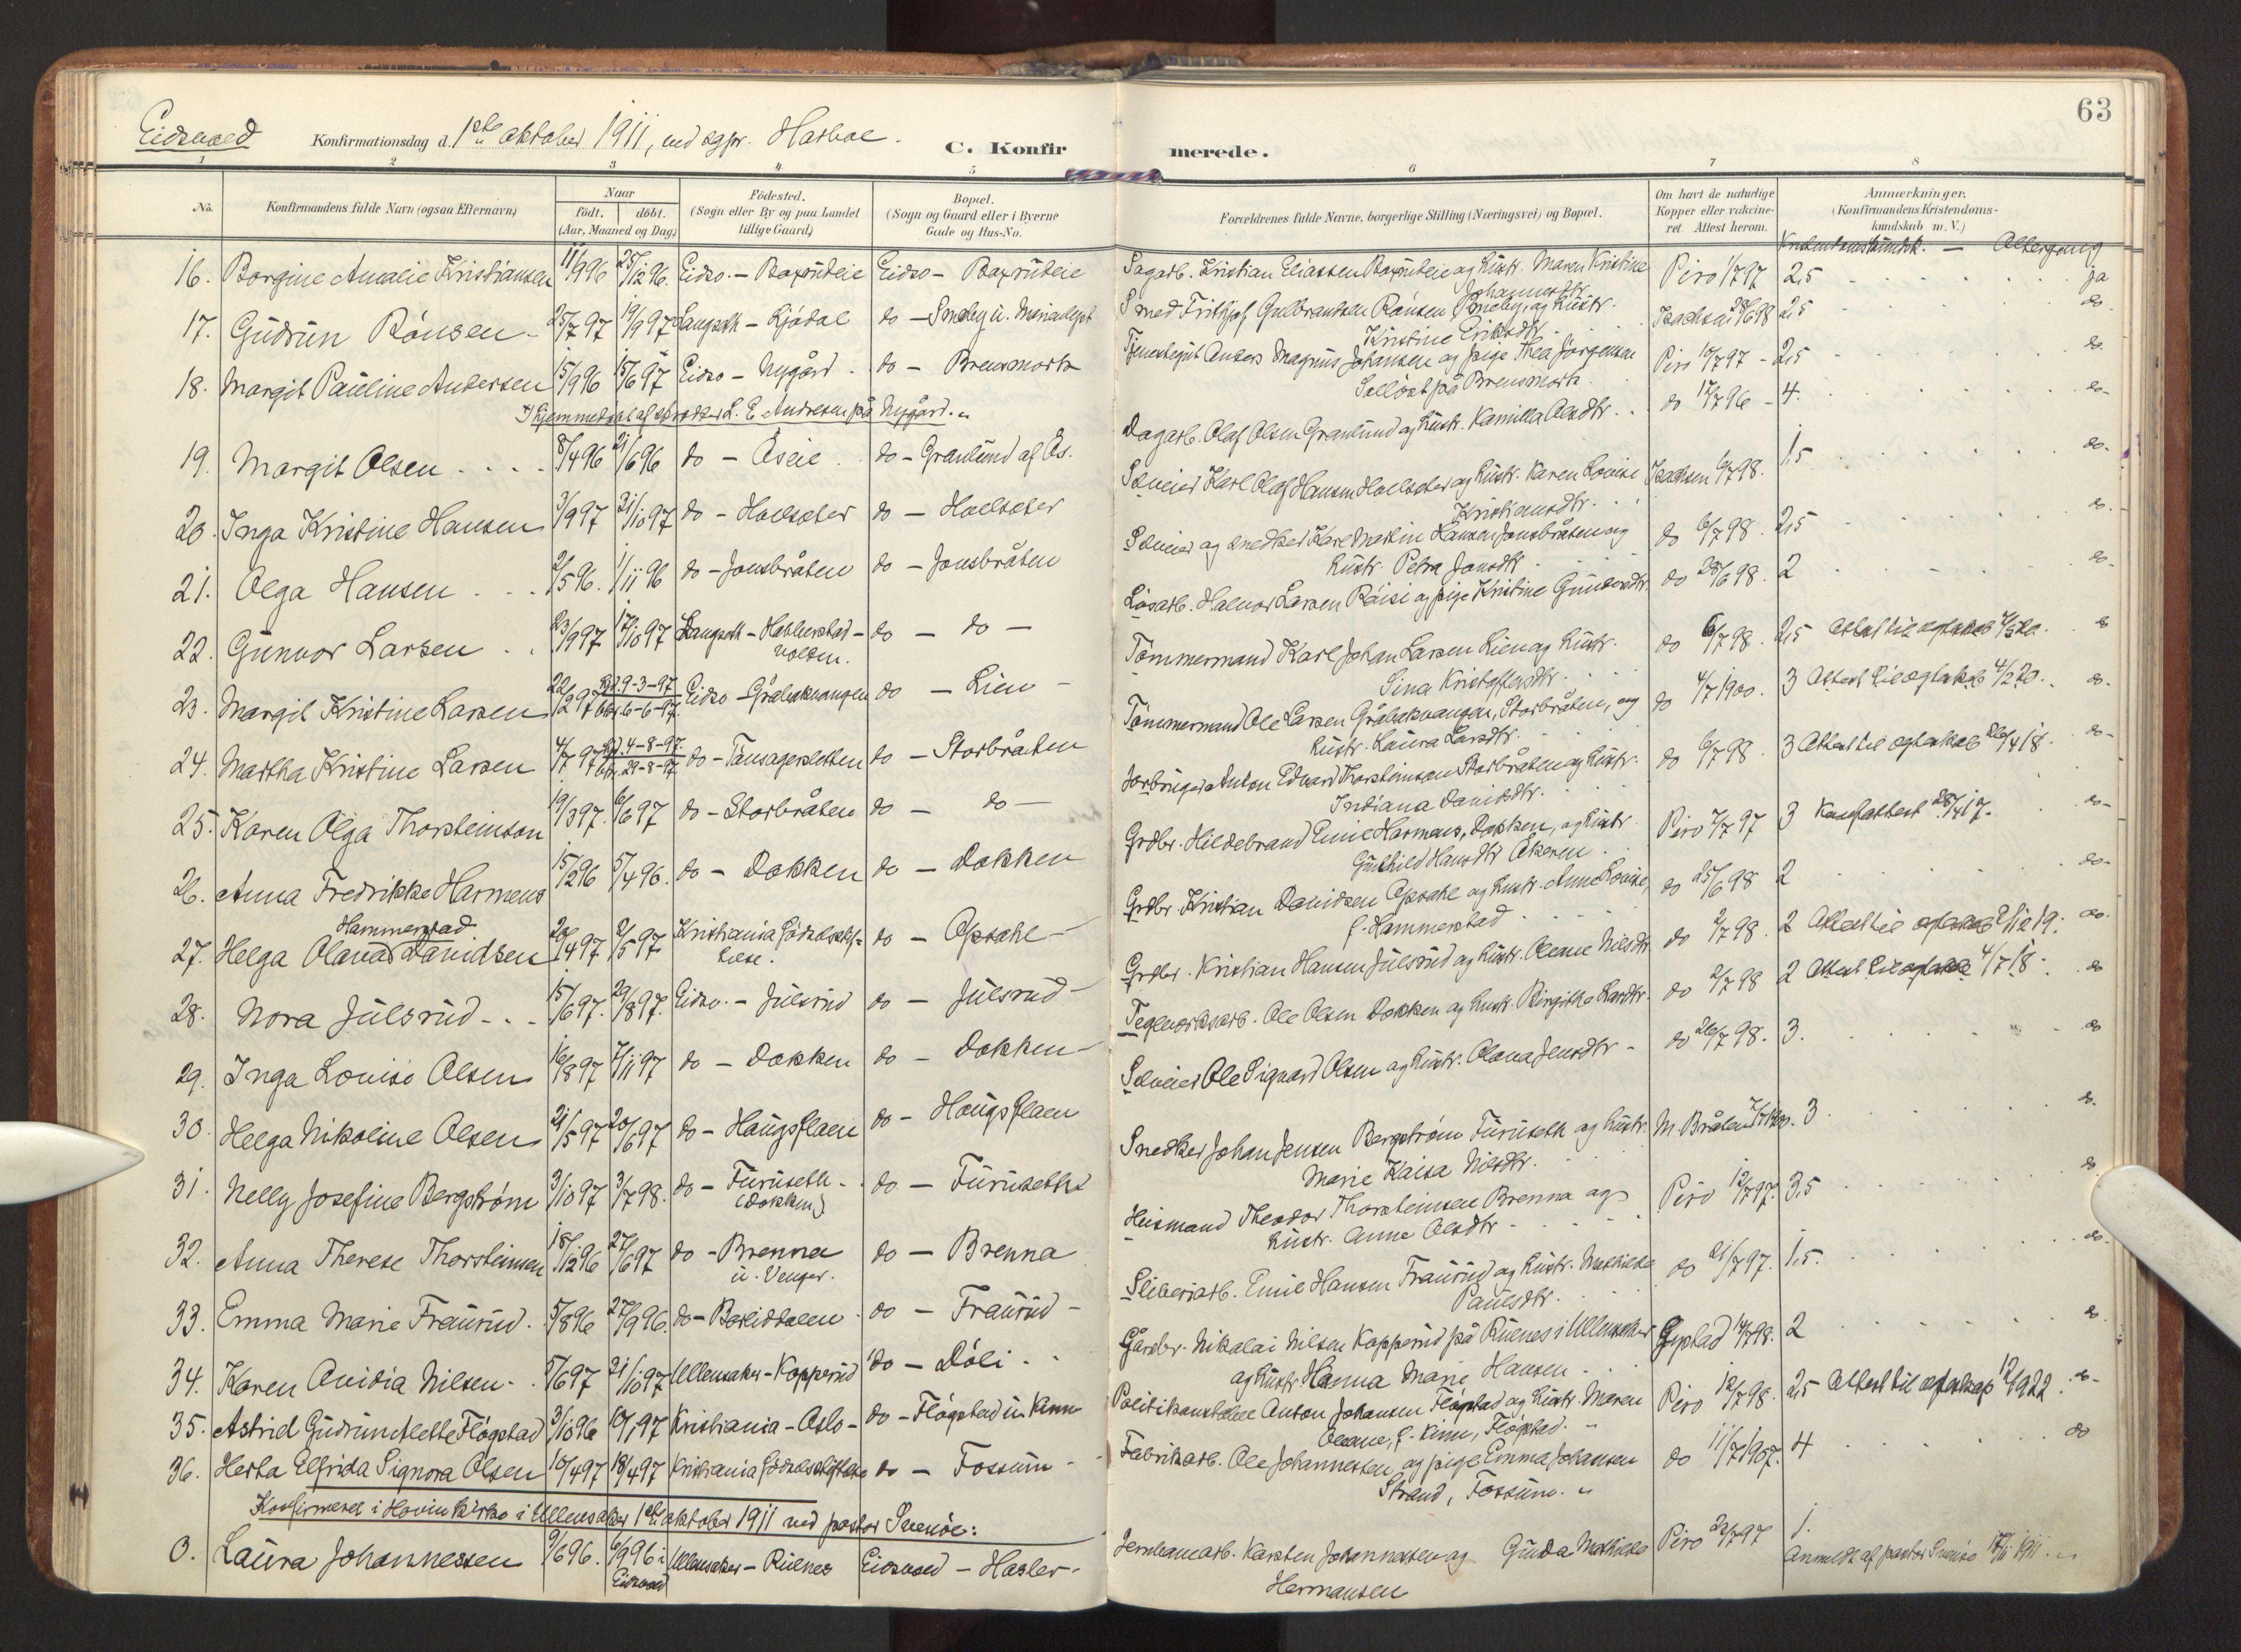 63
Eidsvold Konfirmationsdag d. 1ste oktober 1911, ved sgpr. Harboe.
C. Konfirmerede.
1 2 3 4 5 6 7 8
No. Konfirmandens fulde Navn (ogsaa Efternavn) Naar født. døbt. (Aar, Maaned og Dag) Fødested. (Sogn eller By og paa Landet tillige Gaard) Bopæl. (Sogn og Gaard eller i Byerne Gade og Hus-No. Forældrenes fulde Navne, borgerlige Stilling (Næringsvei) og Bopæl. Om havt de naturlige Kopper eller vakcineret. Attest herom. Anmærkninger. (Konfirmandens Kristendomskundskab m. V.)
Kristendomskundsk. — Altergang
16. Borgine Amalie Kristiansen 11/9 96 25/12 96. Eidsv. - Bøxrudeie Eidsv - Bøxrudeie Sagarb. Kristian Eliassen Bøxrudeie og hustr. Maren Kristine Johannesdtr. Piro 1/7 97 2,5 ja
17. Gudrun Rönsen 25/7 97 19/9 97 Langseth - Ljødal do - Smeby u. Smed Frithjof Gulbrandsen Rönsen Smeby, og hustr. Kristine Eriksdtr. Isachsen 28/6 98 2,5 do
18. Margit Pauline Andersen 15/9 96 15/6 97 Eidsv - Nygård do - Brensmork Tjenestegut Anders Magnus Johansen og pige Thea Jörgensen Sollöst på Brensmork. Piro 10/7 97 - 2,5 do
Hjemmedøbt af L. E. Andresen på Nygård.
19. Margit Olsen 8/4 96 21/6 96 do - Åseie do - Granlund af Ås. Dagarb. Olaf Olsen Granlund og hustr. Kamilla Olsdtr. do 17/7 96 - 4. do-
20. Inga Kristine Hansen 3/9 97 31/10 97 do - Hoelseter do - Hoelseter Selveier Karl Olaf Hansen Hoelseter og hustr. Karen Lovise Kristiansdtr. Isachsen 6/7 98. 1,5 do-
21. Olga Hansen 2/5 96. 1/11 96 do - Jonsbråten do - Jonsbråten Selveier og snedker Kare Martin Hansen Jonsbråten og hustr. Petra Jonsdtr do 6/7 98. 2,5 do.
22. Gunvor Larsen 23/9 97 17/10 97 Langseth - Hablerstad-volden. do - do - Løsarb. Halvor Larsen Räisi og pige Kristine Gundersdtr. do 28/6 98. 2 do-
23. Margit Kristine Larsen 22/2 97 9-3-97 6-6-97. Eidsv - Gråbekvangen do - Lien - Tömmermand Karl Johan Larsen Lien og hustr. Sina Kristoffersdtr. do 6/7 98. 2,5 Attest til ægteskab do
24. Martha Kristine Larsen 4/7 97 4-8-97. 29-8-97 do - Tansagersletten do - Storbråten Tömmermand Ole Larsen Gråbekvangen, Storbråten, og hustr. Laura Larsdtr. do 4/7 1900. 3 Attest til ægteskab 4/2 20. do-
25. Karen Olga Thorsteinson 19/3 97. 6/6 97 do - Storbråten do - do - Jorbruger Anton Edvard Thorsteinson Storbråten og hustr. Indiana Davidsdtr. do 6/7 98. 3 Attest til ægteskab 26/4 18. do-
26. Anna Fredrikke Harmens 15/2 96 5/4 96. do - Dokken do - Dokken Grdbr. Hildebrand Emil Harmens, Dokken, og hustr. Guthild Hansdtr Åkeren. Piro 7/7 97 3 Konf.attest 28/4 17. do-
27. Helga Olava Hammerstad Davidsen 20/4 97 2/5 97 Kristiania Fødselsstiftelse. do - Opsahl - Grdbr. Kristian Davidsen Opsahl og hustr. Anne Lovise, f. Hammerstad do 25/6 98 2 do-
28. Nora Julsrud 15/6 97. 29/8 97. Eidsv. - Julsrud do - Julsrud - Grdbr. Kristian Hansen Julsrud og hustr. Oleane Nilsdtr. do 2/7 98. 2 Attest til ægteskab 2/12 19. do-
29. Inga Lovise Olsen 16/8 97 7/11 97 do - Dokken do - Dokken - Teglverksarb. Ole Olsen Dokken og hustr. Birgithe Larsdtr. do 2/7 98 2 Attest til ægteskab 4/7 18. do
30. Helga Nikoline Olsen 21/5 97 20/6 97 do - Haugsflaen do - Haugsflaen Selveier Ole Sigvard Olsen og hustr. Olava Jensdtr - do 26/7 98. 3. do
31. Nelly Josefine Bergström 3/10 97 3/7 98. do - Furuseth (Dokken) do - Furuseth Snedker Johan Jensen Bergström Furuseth og hustr. Marie Kaisa Nilsdtr. M. Bråten 3. do.
32. Anna Therese Thorsteinsen 18/12 96 27/6 97 do - Brenna u. Venger. do - Brenna Husmand Theodor Thorsteinsen Brenna og hustr. Anne Olsdtr Piro 12/7 97. 3,5 do.
33. Emma Marie Fraurud. 5/8 96 27/9 96. do - Barlidalen do - Fraurud - Sliberiarb. Emil Hansen Fraurud og hustr. Mathilde Paulsdtr. do 21/7 97. 1,5. do-
34. Karen Ovidia Nilsen 5/6 97 31/10 97 Ullensaker - Kopperud do - Döli Gårdbr. Nikolai Nilsen Kopperud på Rulnes i Ullensaker og hustr. Hanna Marie Hansen Gystad 14/7 98. 2 do.
35. Astrid Gudrun Alette Flögstad 3/10 96 10/1 97 Kristiania - Oslo - do - Flögstad u. Kinn Politikonstabel Anton Johansen Flögstad og hustr. Maren Oleane, f. Kinn, Flögstad. Piro 12/7 98. 2,5 Attest til ægteskap 12/9 22. do-
36. Herta Elfrida Signora Olsen 10/4 97 18/4 97 Kristiania Fødselsstiftelse do - Fossum - Fabrikarb. Ole Johannessen og pige Emma Johansen Strand, Fossum. do 11/7 1907. 4 do
Konfirmeret i Hovin kirke i Ullensaker 1ste oktober 1911 ved pastor Svenöe:
0. Laura Johannessen 9/6 96. 6/9 96 i Eidsvold Ullensaker - Rulnes Eidsvold - Hasler. Jernbanearb. Karsten Johannessen og Gunda Mathilde Hermansen Piro 22/7 97 1. Anmeldt af pastor Svenöe 17/11 1911.